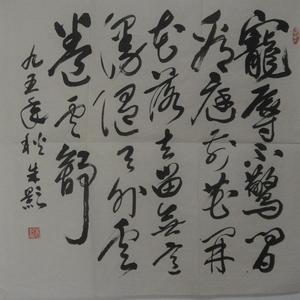 寵辱不驚閒
看庭前花開
花落去留無意
漫隨天外雲
卷云舒
九五年秋朱影